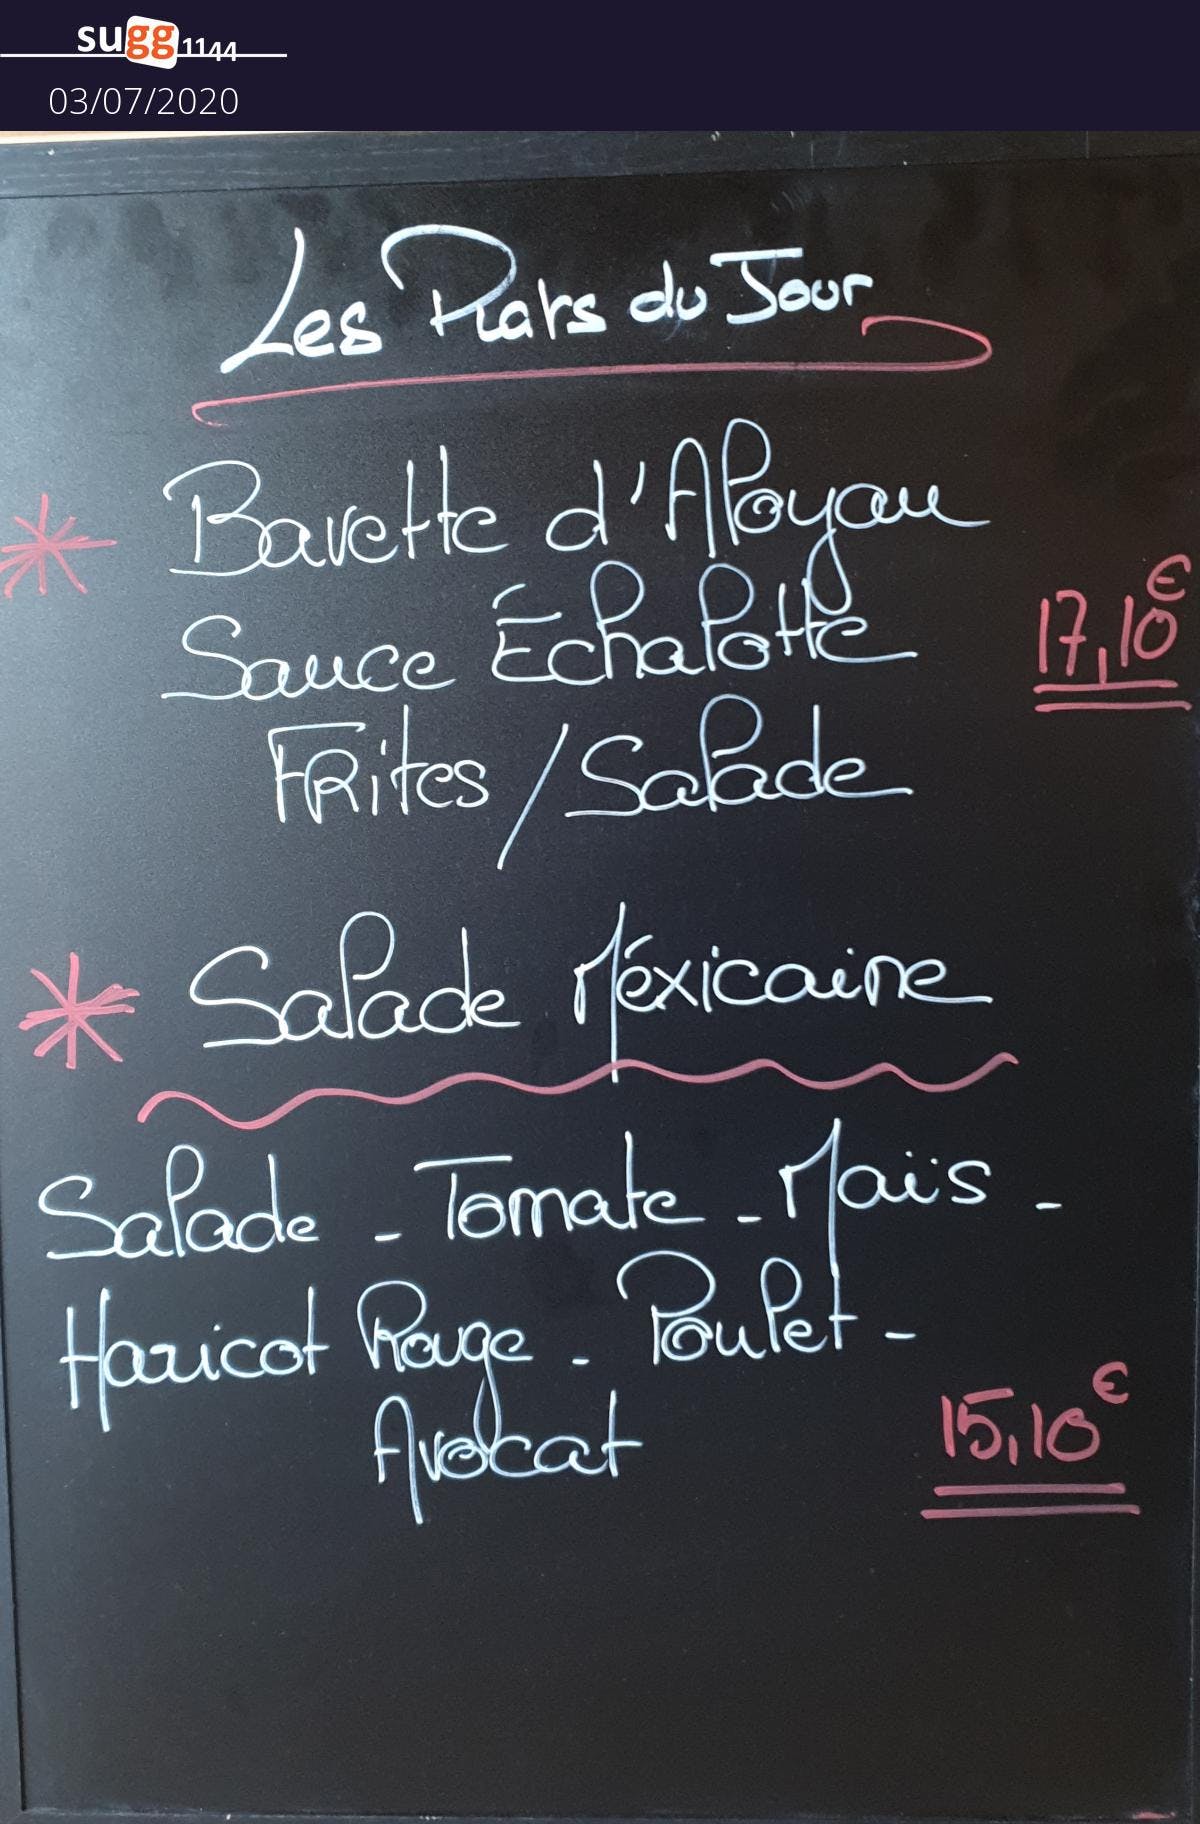 sugg1144
03/07/2020
Les Plats du Jour
* Bavette d'Aloyau
Sauce Échalotte
17,10€
Frites / Salade
* Salade Méxicaine
Salade - Tomate - Maïs -
Haricot Rouge - Poulet -
Avocat
15,10€